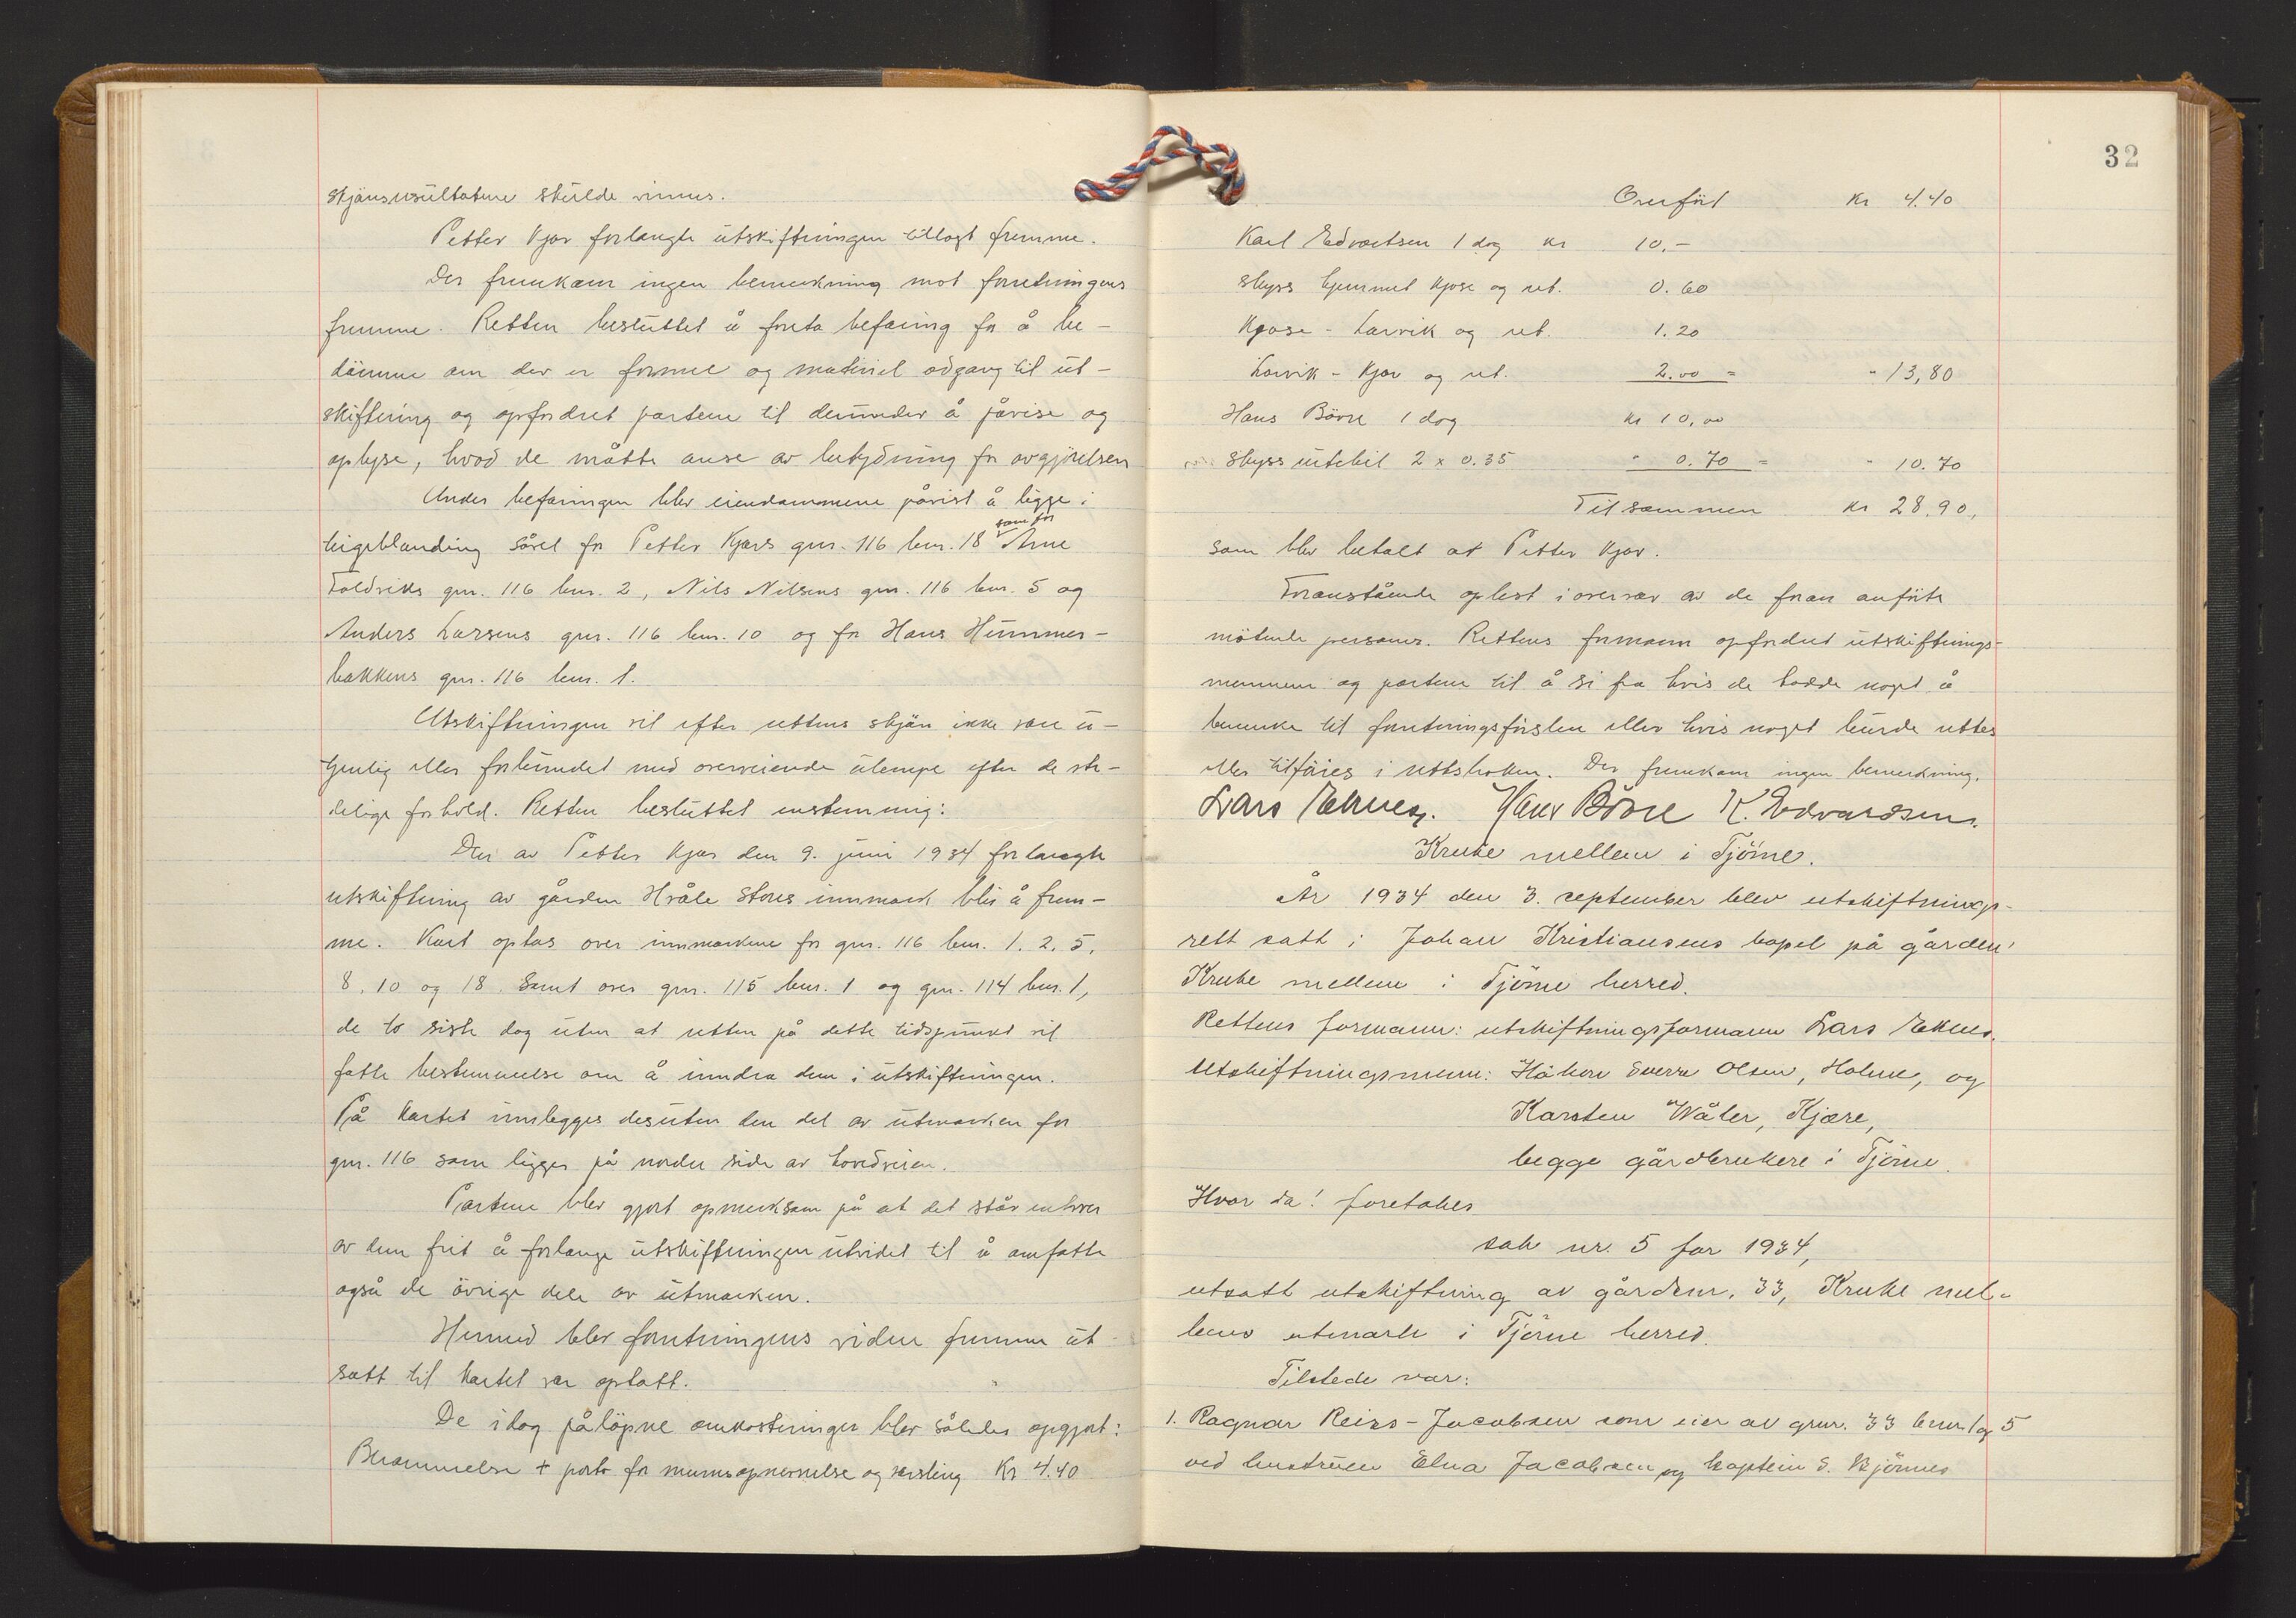 skjønsresultatene skulde vinnes.
Petter Kjær forlangte utskiftningen tillagt fremme.
Der fremkom ingen bemerkning mot forretningens
fremme. Retten besluttet å foreta befaring for å be-
dømme om der er formel og materiel adgang til ut-
skiftning og opfordret partene til derunder å påvise og
oplyse, hvad de måtte anse av betydning for avgjørelsen
Under befaringen blev eiendommene påvist å ligge i
teigeblanding såvel for Petter Kjærs gnr. 116 bnr. 18 som for Arne
Foldviks gnr. 116 bnr. 2, Nils Nilsens gnr. 116 bnr. 5 og
Anders Larsens gnr. 116 bnr. 10 og for Hans Hummer-
bakkens gnr. 116 bnr. 1.
Utskiftningen vil efter rettens skjøn ikke være u-
tjenlig eller forbundet med overveiende ulempe efter de ste-
delige forhold. Retten besluttet enstemmig:
Den av Petter Kjær den 9. juni 1934 forlangte
utskiftning av gården Hvåle stores innmark blir å frem-
me. Kart optas over innmarkene for gnr. 116 bnr. 1. 2. 5.
8. 10 og 18. Samt over gnr. 115 bnr. 1 og gnr. 114 bnr. 1,
de to siste dog uten at retten på dette tidspunkt vil
fatte bestemmelse om å inndra dem i utskiftningen.
På kartet innlegges desuten den del av utmarken for
gnr. 116 som ligger på nordre side av hovedveien.
Partene blev gjort opmerksom på at det står enhver
av dem frit å forlange utskiftningen utvidet til å omfatte
også de øvrige dele av utmarken.
Hermed blev forretningens videre fremme ut-
satt til kartet var optatt.
De idag påløpne omkostninger blev således opgjort:
Berammelse + porto for mennsopnevnelse og varsling Kr 4.40
32
Overført Kr 4.40
Karl Edvartsen 1 dag kr 10.-
Skyss hjemmet Kjose og ret. 0.60
Kjose - Larvik og ret. 1.20
Larvik - Kjær og ret. 2.00 = " 13,80
Hans Bövre 1 dag kr 10,00
Skyss rutebil 2 x 0.35 " 0.70 = " 10.70
Tilsammen kr 28.90,
som blev betalt av Petter Kjær.
Foranstående oplest i overvær av de foran anførte
møtende personer. Rettens formann opfordret utskiftnings-
mennene og partene til å si fra hvis de hadde noget å
bemerke til forretningsførslen eller hvis noget burde rettes
eller tilføies i rettsboken. Der fremkom ingen bemerkning.
Lars Eknes. Hans Bövre K. Edvardsen.
Kruke mellem i Tjöme.
År 1934 den 3. september blev utskiftnings-
rett satt i Johan Kristiansens bopel på gården
Kruke mellem i Tjöme herred.
Rettens formann: utskiftningsformann Lars Eknes.
Utskiftningsmenn: Håkon Sverre Olsen, Holme, og
Karsten Wåler, Kjære,
begge gårdbrukere i Tjöme.
Hvor da! foretokes
sak nr. 5 for 1934,
utsatt utskiftning av gårdsnr. 33, Kruke mel-
lems utmark i Tjöme herred.
Tilstede var:
1. Ragnar Reiss-Jacobsen som eier av gnr. 33 bnr. 1 og 5
ved hustruen Elna Jacobsen og kaptein S. Bjönnes